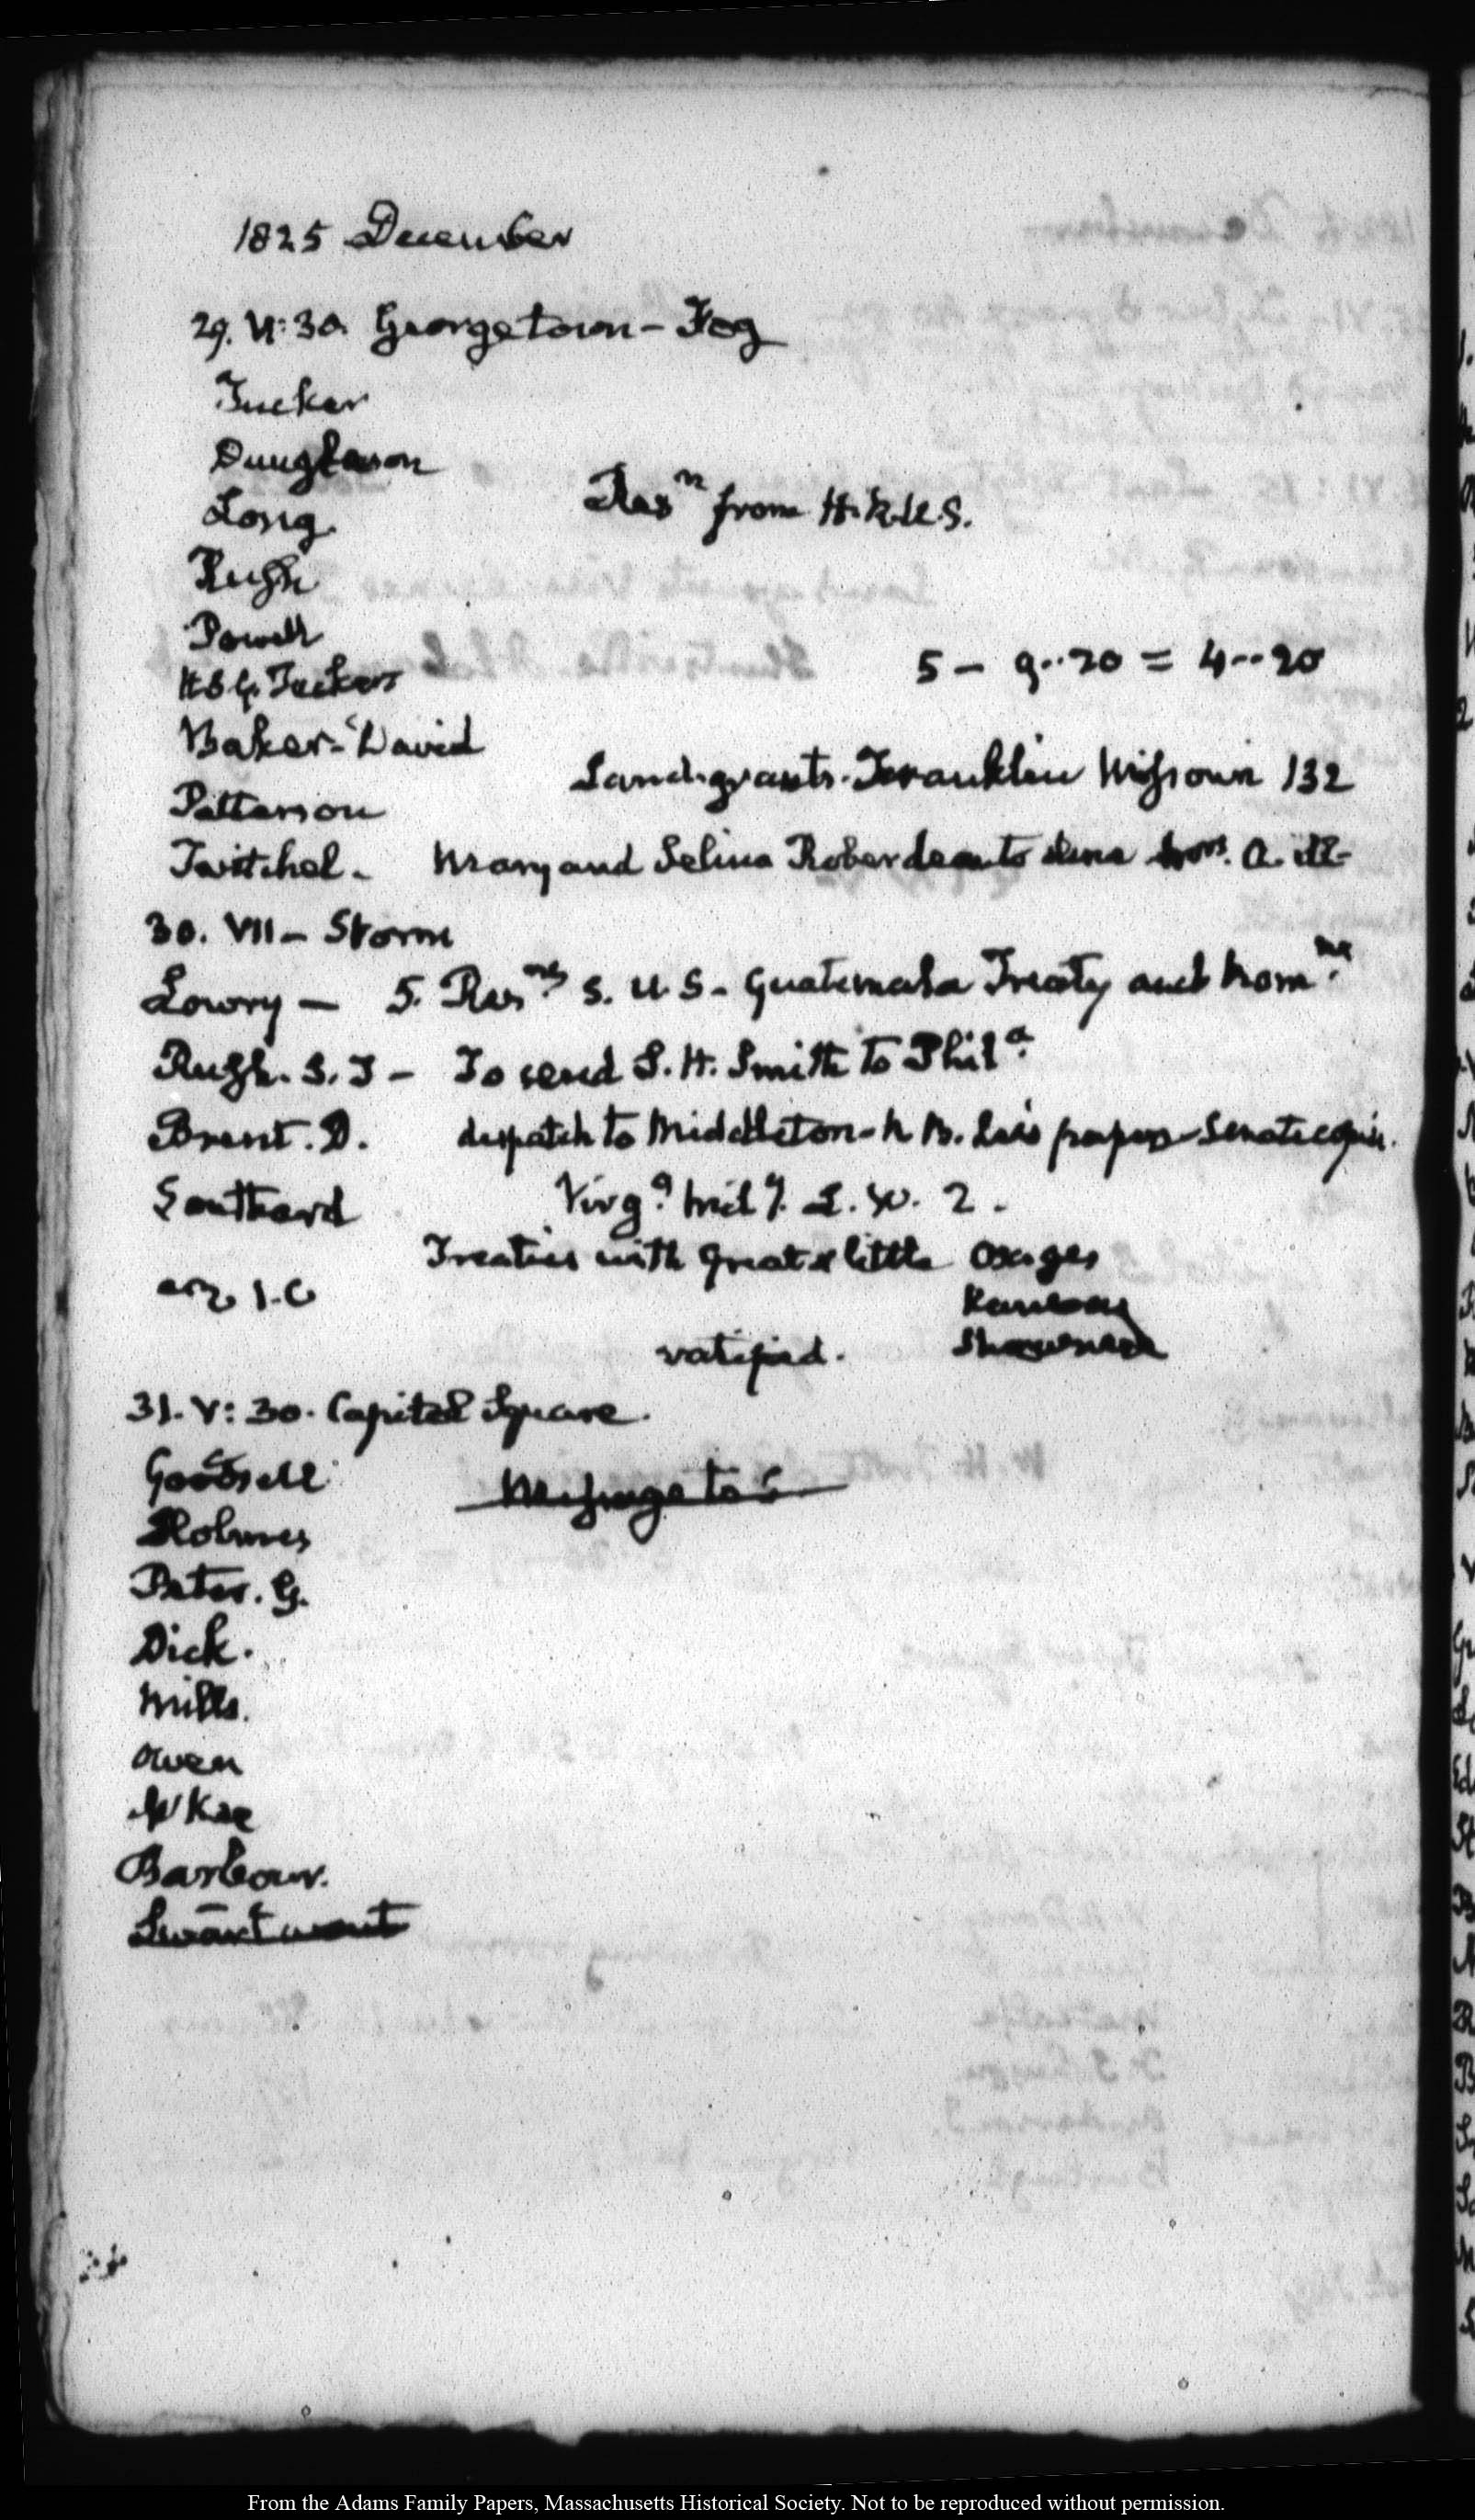 1825 December
29. V:30. Georgetown - Fog
Tucker
Dunglison
Long.
Resn from H.R.U.S.
Rush
Powell
5 - 9..20 = 4..20
H S G. Tucker
Baker - David
Land-grants. Franklin Missouri 132
Patterson
Twitchel. Mary and Selina Roberdeau to dine Mrs. A. ill
30. VII - Storm
Lowry - 5. Resns S. U.S - Guatemala Treaty and Nomns
Rush. S. T - To send S. H. Smith to Phila.
Brent. D. despatch to Middleton - papers - Senate copies.
Southard Virga. Mily. L. W. 2.
Treaties with Great & little Osages
Kanzas
ratified. Shawnees
31. V: 30. Capitol Square.
Goodsell Message to S
Holmes
Peter. G.
Dick.
Mills.
Owen
McKee
Barbour.
Swartwout
From the Adams Family Papers, Massachusetts Historical Society. Not to be reproduced without permission.